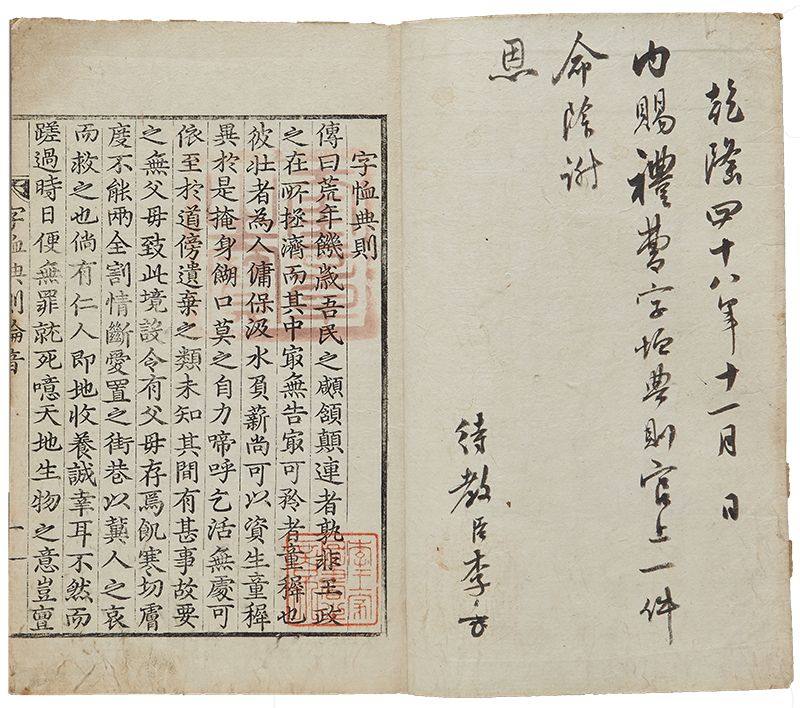 乾隆四十八年十一月 日
內賜禮曹字恤典則官上一件
命除謝
恩
待教臣李
字恤典則
傳曰荒年饑歲吾民之顑頷顚連者孰非王政
之在所拯濟而其中㝡無告㝡可矜者童穉也
彼壯者為人傭保汲水負薪尚可以資生童穉
異於是掩身餬口莫之自力啼呼乞活無處可
依至於道傍遺棄之類未知其間有甚事故要
之無父母致此境設令有父母存焉飢寒切膚
度不能兩全割情斷愛置之街巷以冀人之哀
而救之也倘有仁人即地收養誠幸耳不然而
蹉過時日便無罪就死噫天地生物之意豈亶
字恤典則綸音 一
李王家
圖書之章